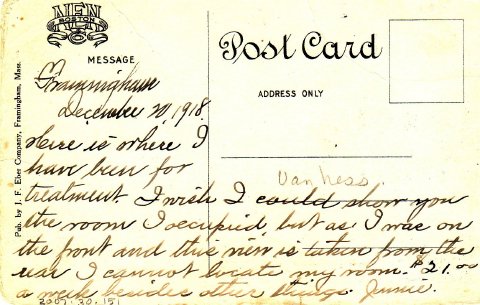 NEN
BOSTON
MESSAGE
Post Card
ADDRESS ONLY
Pub. by J. F. Eber Company, Framingham, Mass.
Framingham
December 20, 1918.
Here is where I
have been for
treatment. I wish I could show you
Van Ness.
the room I occupied, but as I was on
the front and this view is taken from the
rear I cannot locate my room. $21. oo
a week besides other things. Junie.
2007.30.151